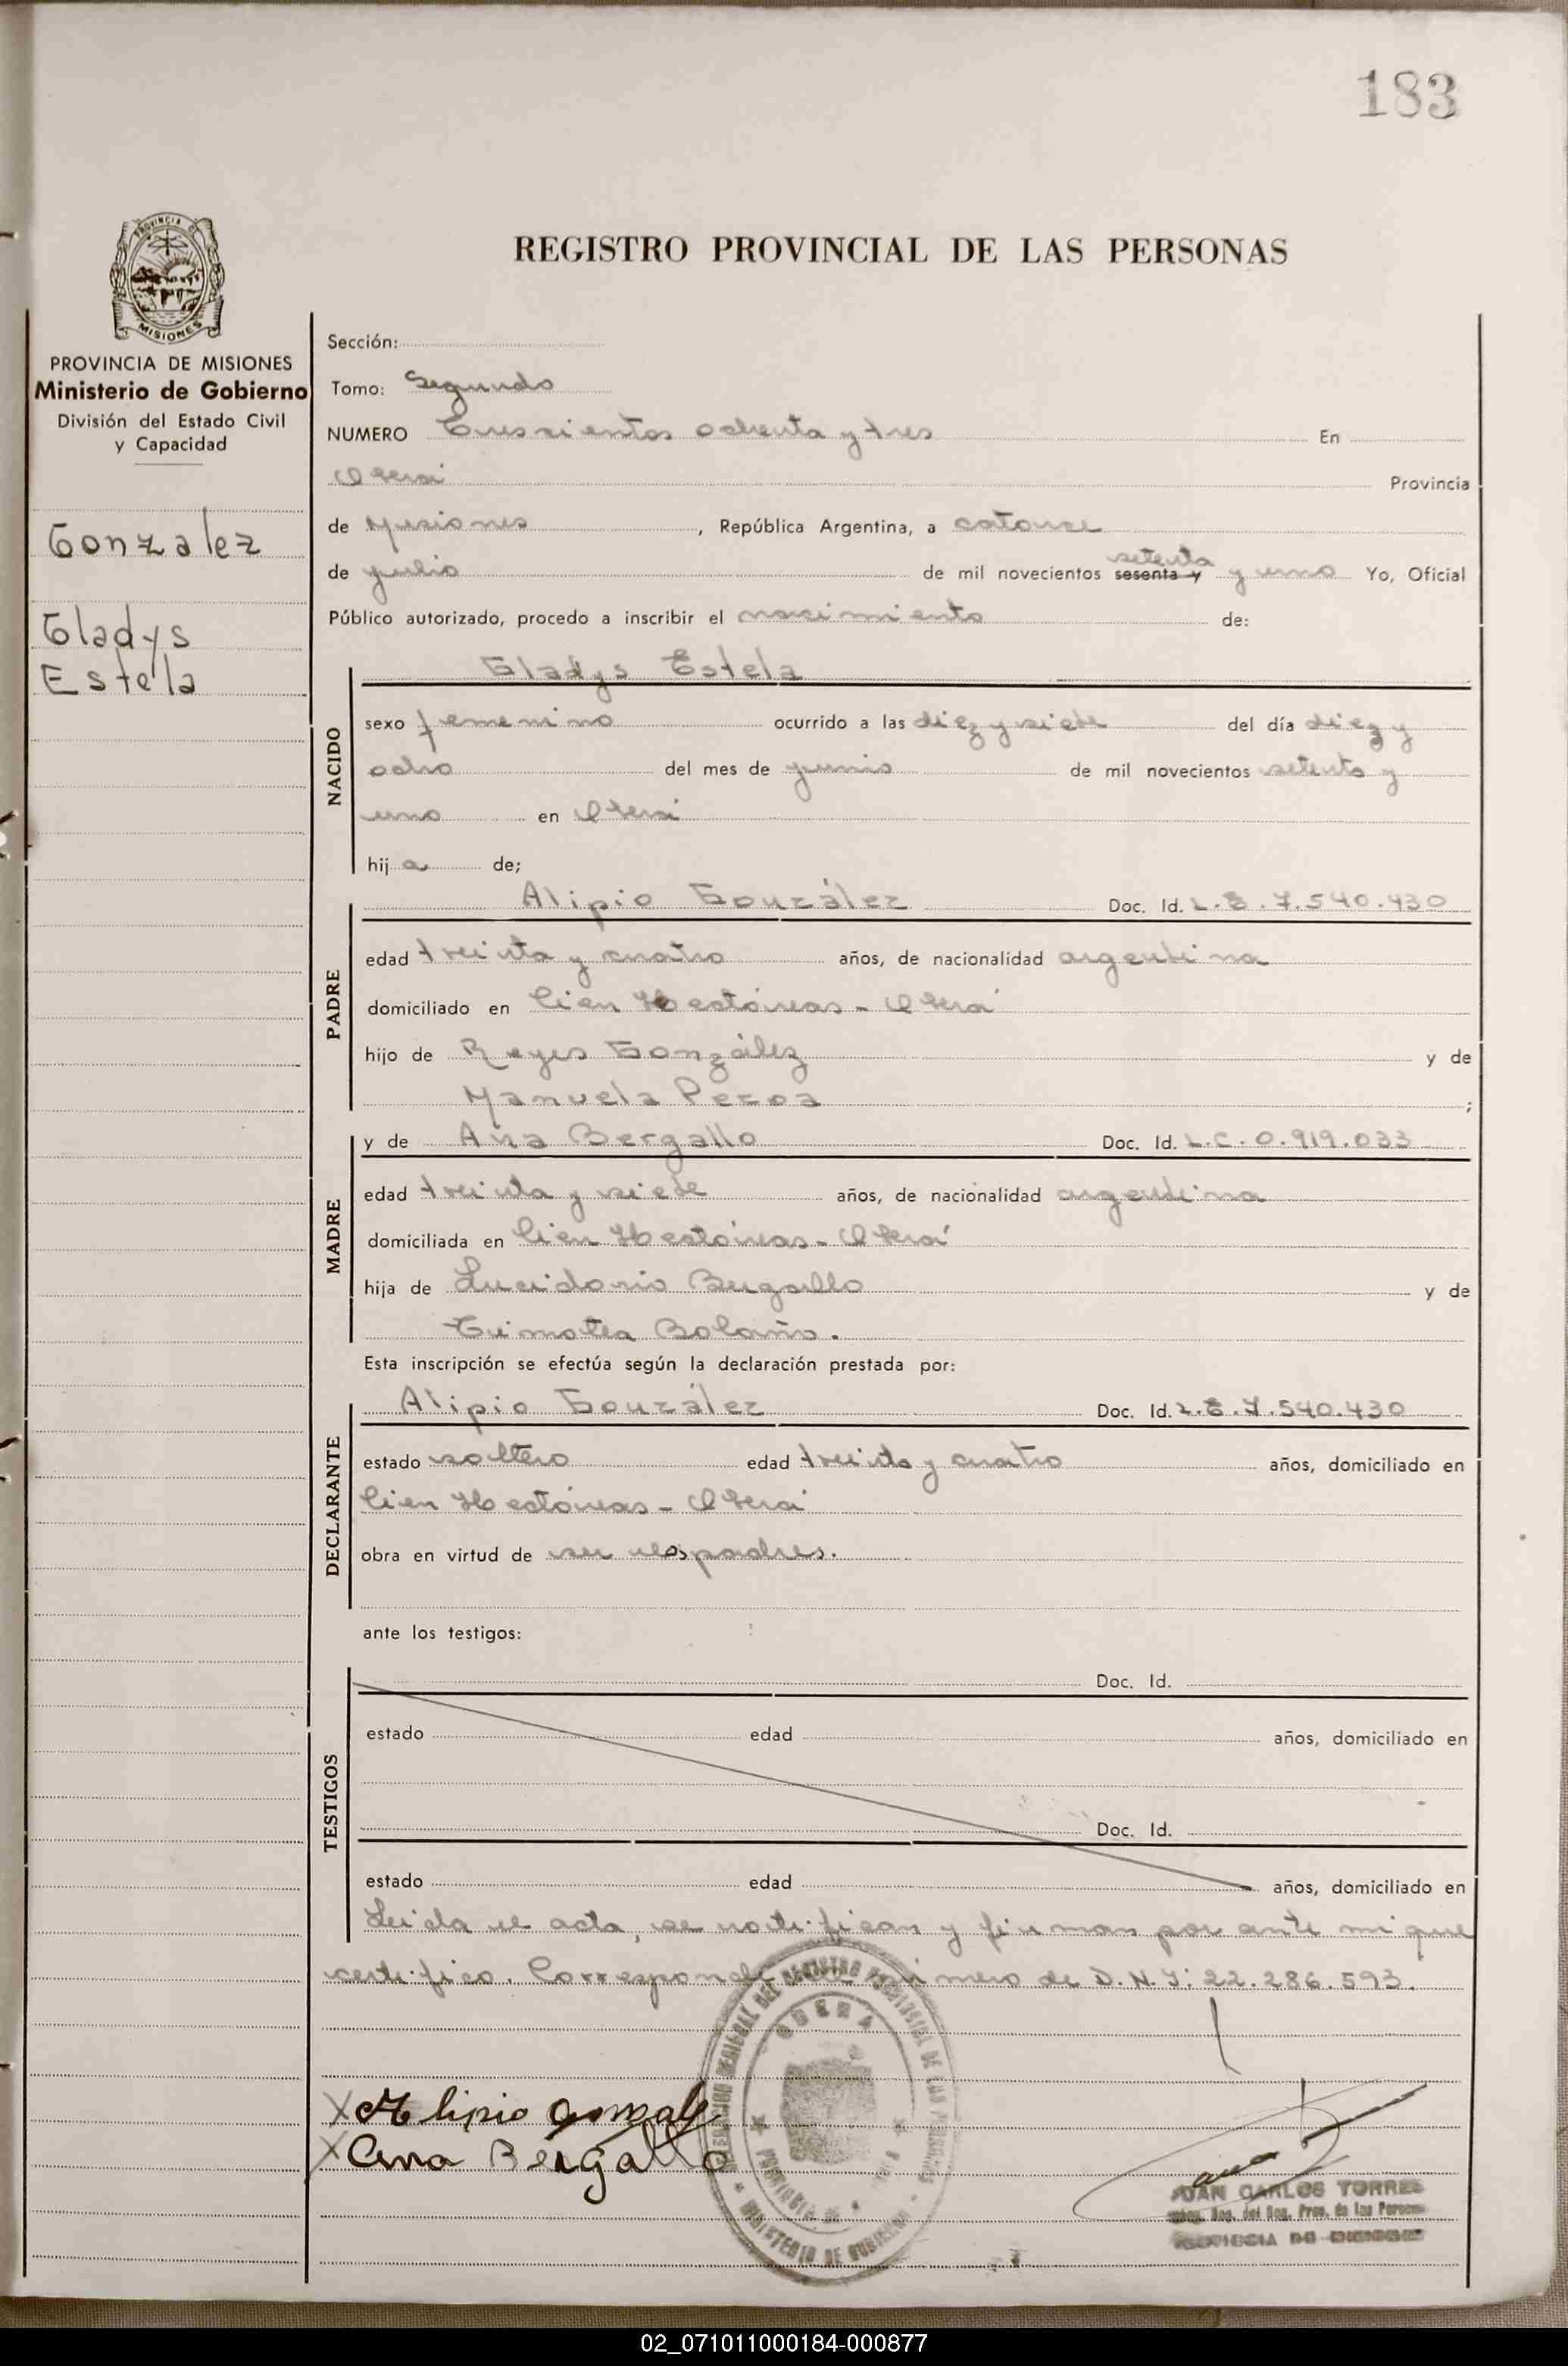 183
REGISTRO PROVINCIAL DE LAS PERSONAS
PROVINCIA DE MISIONES
Ministerio de Gobierno
División del Estado Civil
y Capacidad
Gonzalez
Gladys
Estela
Sección:
Tomo: Segundo
NUMERO Trescientos ochenta y tres En
Oberá Provincia
de Misiones, República Argentina, a catorce
de julio de mil novecientos sesenta y setenta y uno Yo, Oficial
Público autorizado, procedo a inscribir el nacimiento de:
Gladys Estela
NACIDO
sexo femenino ocurrido a las diez y siete del día diez y
ocho del mes de junio de mil novecientos setenta y
uno en Oberá
hija de;
PADRE
Alipio González Doc. Id. L.E. 7.540.430
edad treinta y cuatro años, de nacionalidad argentina
domiciliado en Cien Hectáreas - Oberá
hijo de Reyes González y de
Manuela Pezoa;
MADRE
y de Ana Bergallo Doc. Id. L.C. 0.919.033
edad treinta y siete años, de nacionalidad argentina
domiciliada en Cien Hectáreas - Oberá
hija de Lucidorio Bergallo y de
Timotea Bolaño.
Esta inscripción se efectúa según la declaración prestada por:
DECLARANTE
Alipio González Doc. Id. L.E. 7.540.430
estado soltero edad treinta y cuatro años, domiciliado en
Cien Hectáreas - Oberá
obra en virtud de ser los padres.
ante los testigos:
TESTIGOS
Doc. Id.
estado edad años, domiciliado en
Doc. Id.
estado edad años, domiciliado en
Leida el acta, se ratifican y firman por ante mi que
certifico. Corresponde número de D.N.I: 22.286.593.
Alipio Gonzalez
Ana Bergallo
OBERA
MINISTERIO DE GOBIERNO
JUAN CARLOS TORRES
PROVINCIA DE MISIONES
02_071011000184-000877